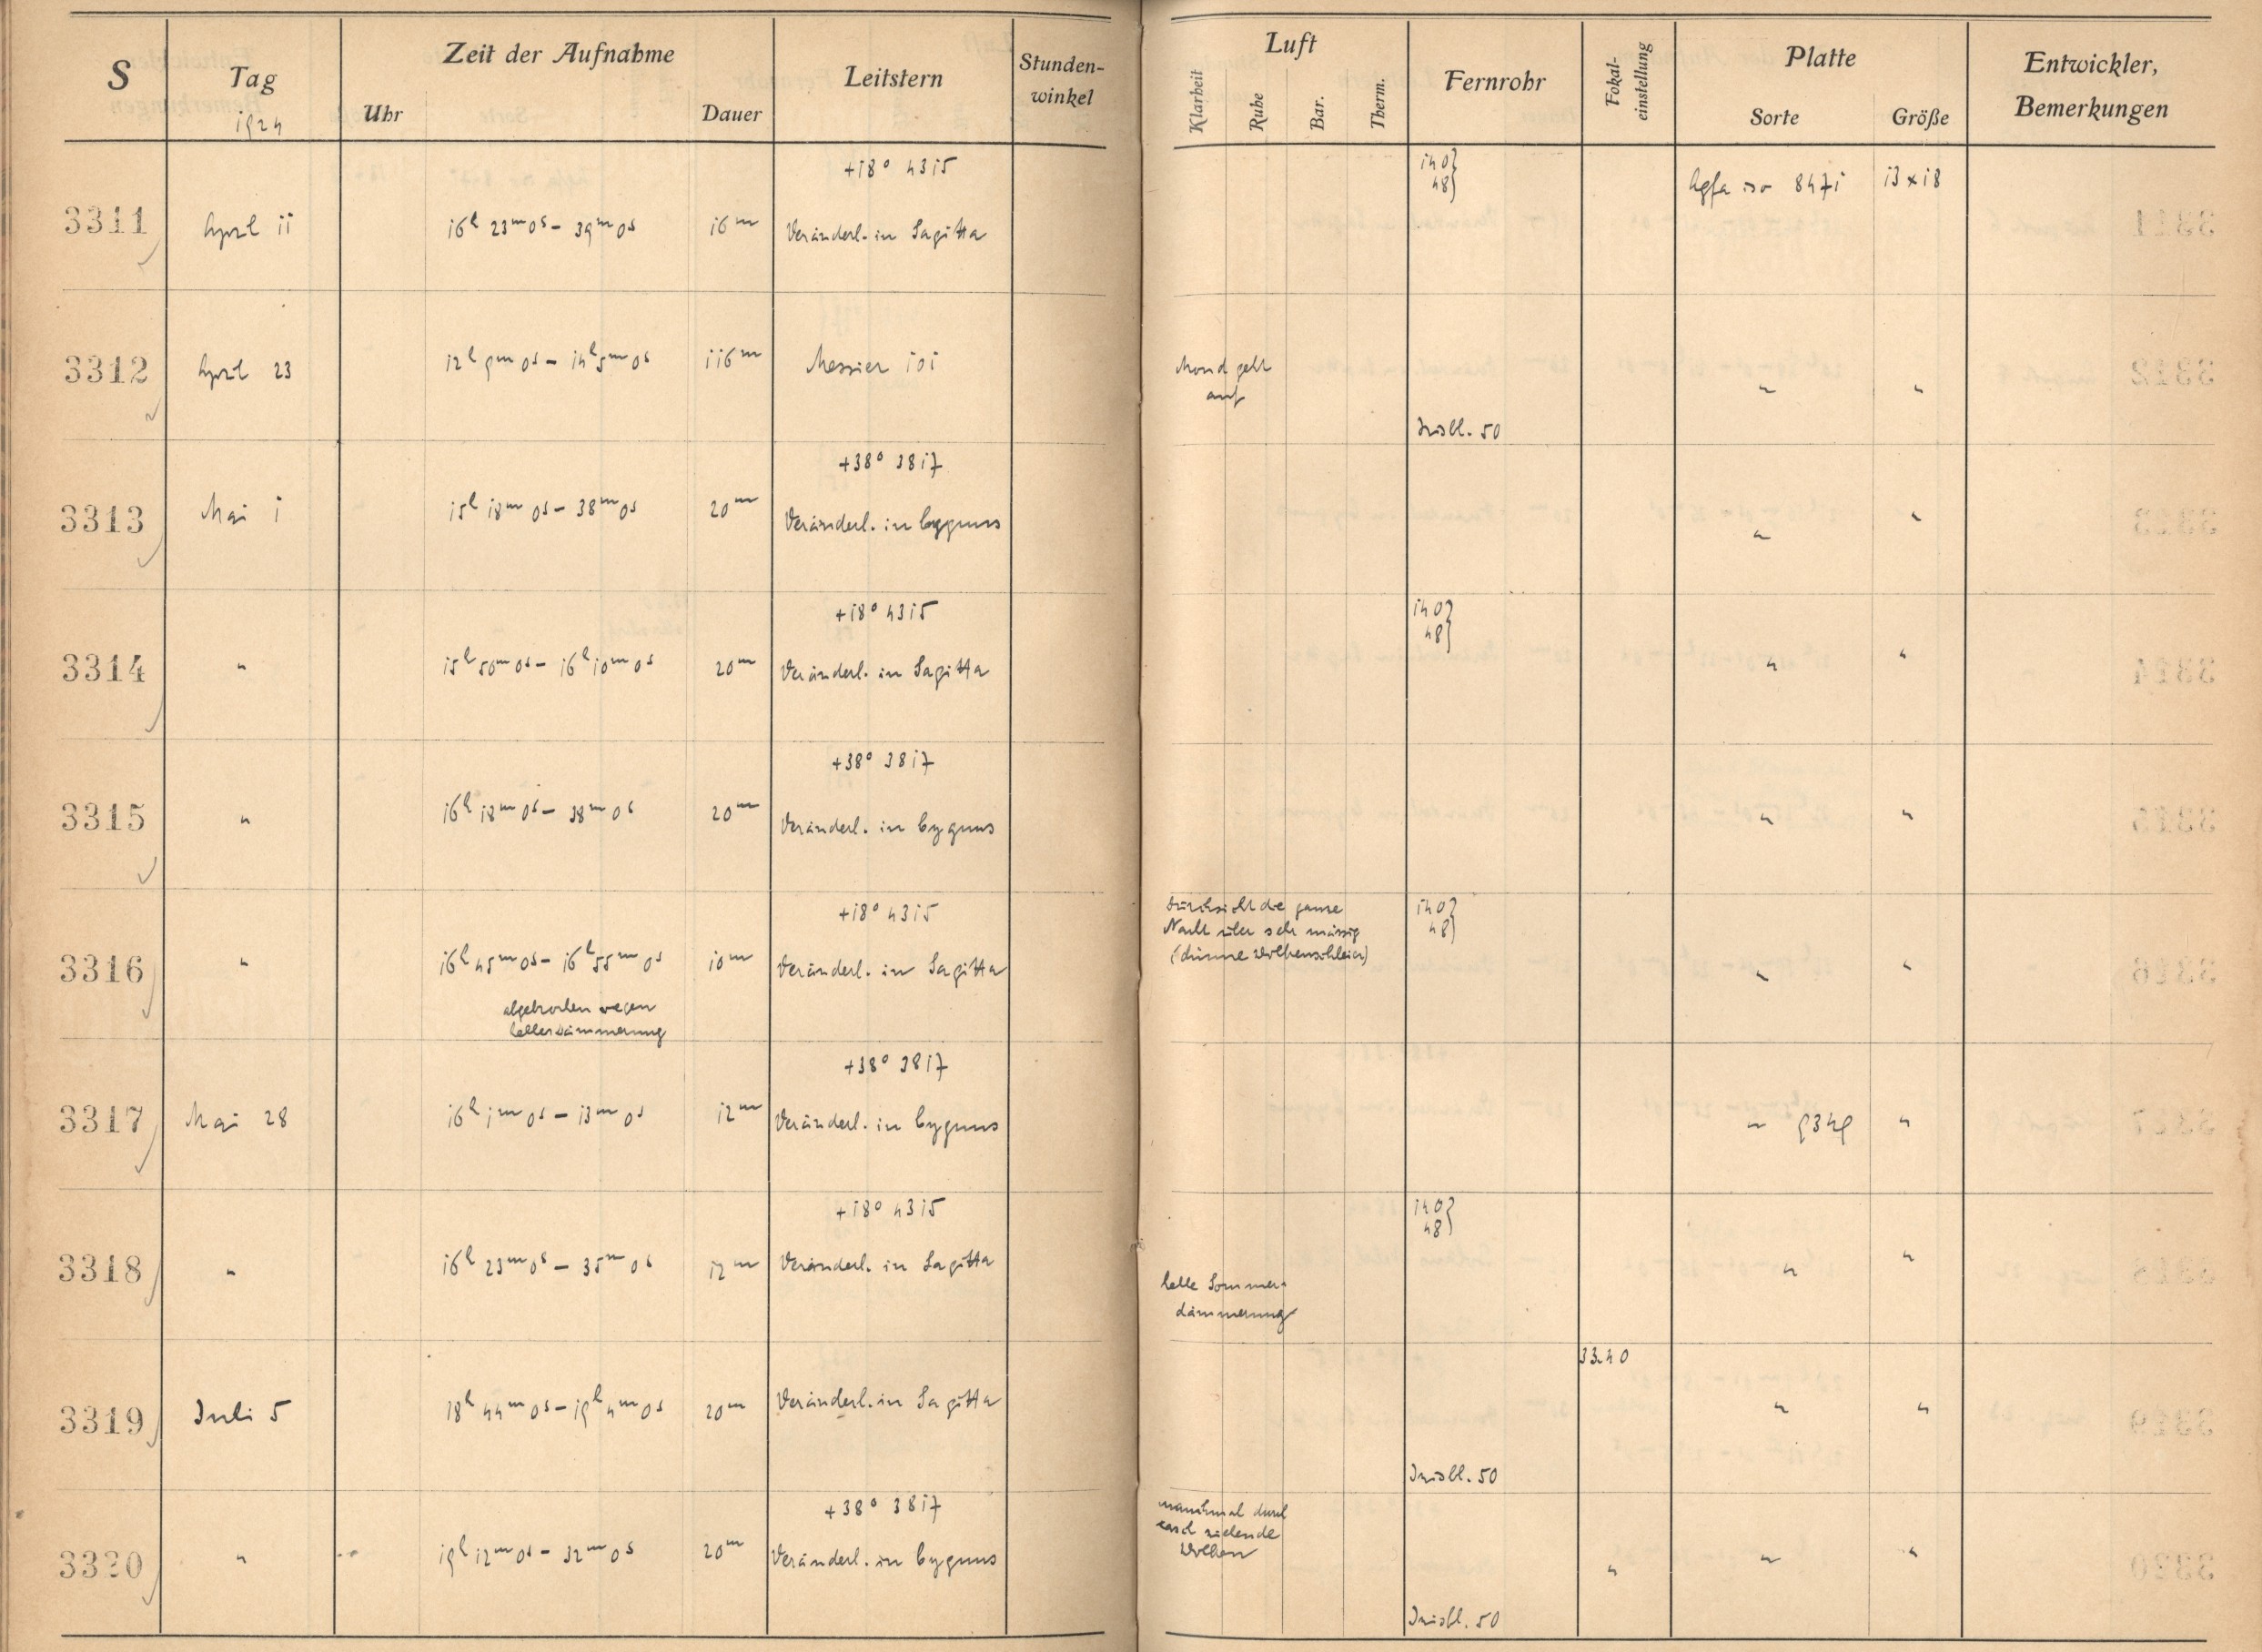 S
Tag
1924
Zeit der Aufnahme
Uhr
Dauer
Leitstern
Stunden-
winkel
Luft
Klarheit
Ruhe
Bar.
Therm.
Fernrohr
Fokal-
einstellung
Platte
Sorte
Größe
Entwickler,
Bemerkungen
+18° 4315
140}
48}
3311 April 11 16h 23m 0s – 39m 0s 16m Veränderl. in Sagitta Agfa iso 8471 13 x 18
3312 April 23 12h 9m 0s – 14h 5m 0s 116m Messier 101 Mond geht
auf
" "
Irisbl. 50
+38° 3817
3313 Mai 1 15h 18m 0s – 38m 0s 20m Veränderl. in Cygnus " "
+18° 4315
140}
48}
3314 " 15h 50m 0s – 16h 10m 0s 20m Veränderl. in Sagitta " "
+38° 3817
3315 " 16h 18m 0s – 38m 0s 20m Veränderl. in Cygnus " "
+18° 4315
Durchsicht die ganze
Nacht über sehr mässig
(dünne Wolkenschleier)
140}
48}
3316 " 16h 45m 0s – 16h 55m 0s 10m Veränderl. in Sagitta " "
abgebrochen wegen
heller Dämmerung
+38° 3817
3317 Mai 28 16h 1m 0s – 13m 0s 12m Veränderl. in Cygnus " 9349 "
+18° 4315
140}
48}
3318 " 16h 23m 0s – 35m 0s 12m Veränderl. in Sagitta " "
helle Sommer-
dämmerung
33.40
3319 Juli 5 18h 44m 0s – 19h 4m 0s 20m Veränderl. in Sagitta " "
Irisbl. 50
+38° 3817
manchmal durch
rasch ziehende
Wolken
3320 " 19h 12m 0s – 32m 0s 20m Veränderl. in Cygnus " " "
Irisbl. 50